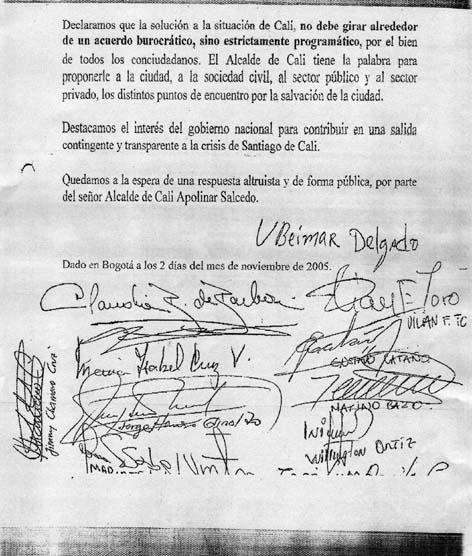 Declaramos que la solución a la situación de Cali, no debe girar alrededor
de un acuerdo burocrático, sino estrictamente programático, por el bien
de todos los conciudadanos. El Alcalde de Cali tiene la palabra para
proponerle a la ciudad, a la sociedad civil, al sector público y al sector
privado, los distintos puntos de encuentro por la salvación de la ciudad.
Destacamos el interés del gobierno nacional para contribuir en una salida
contingente y transparente a la crisis de Santiago de Cali.
Quedamos a la espera de una respuesta altruista y de forma pública, por parte
del señor Alcalde de Cali Apolinar Salcedo.
UBeimar Delgado
Dado en Bogotá a los 2 días del mes de noviembre de 2005.
Claudia
Toro
DILIAN F. TO
María Isabel Cruz V.
Jorge
Wilington ORTIZ
Jimmy